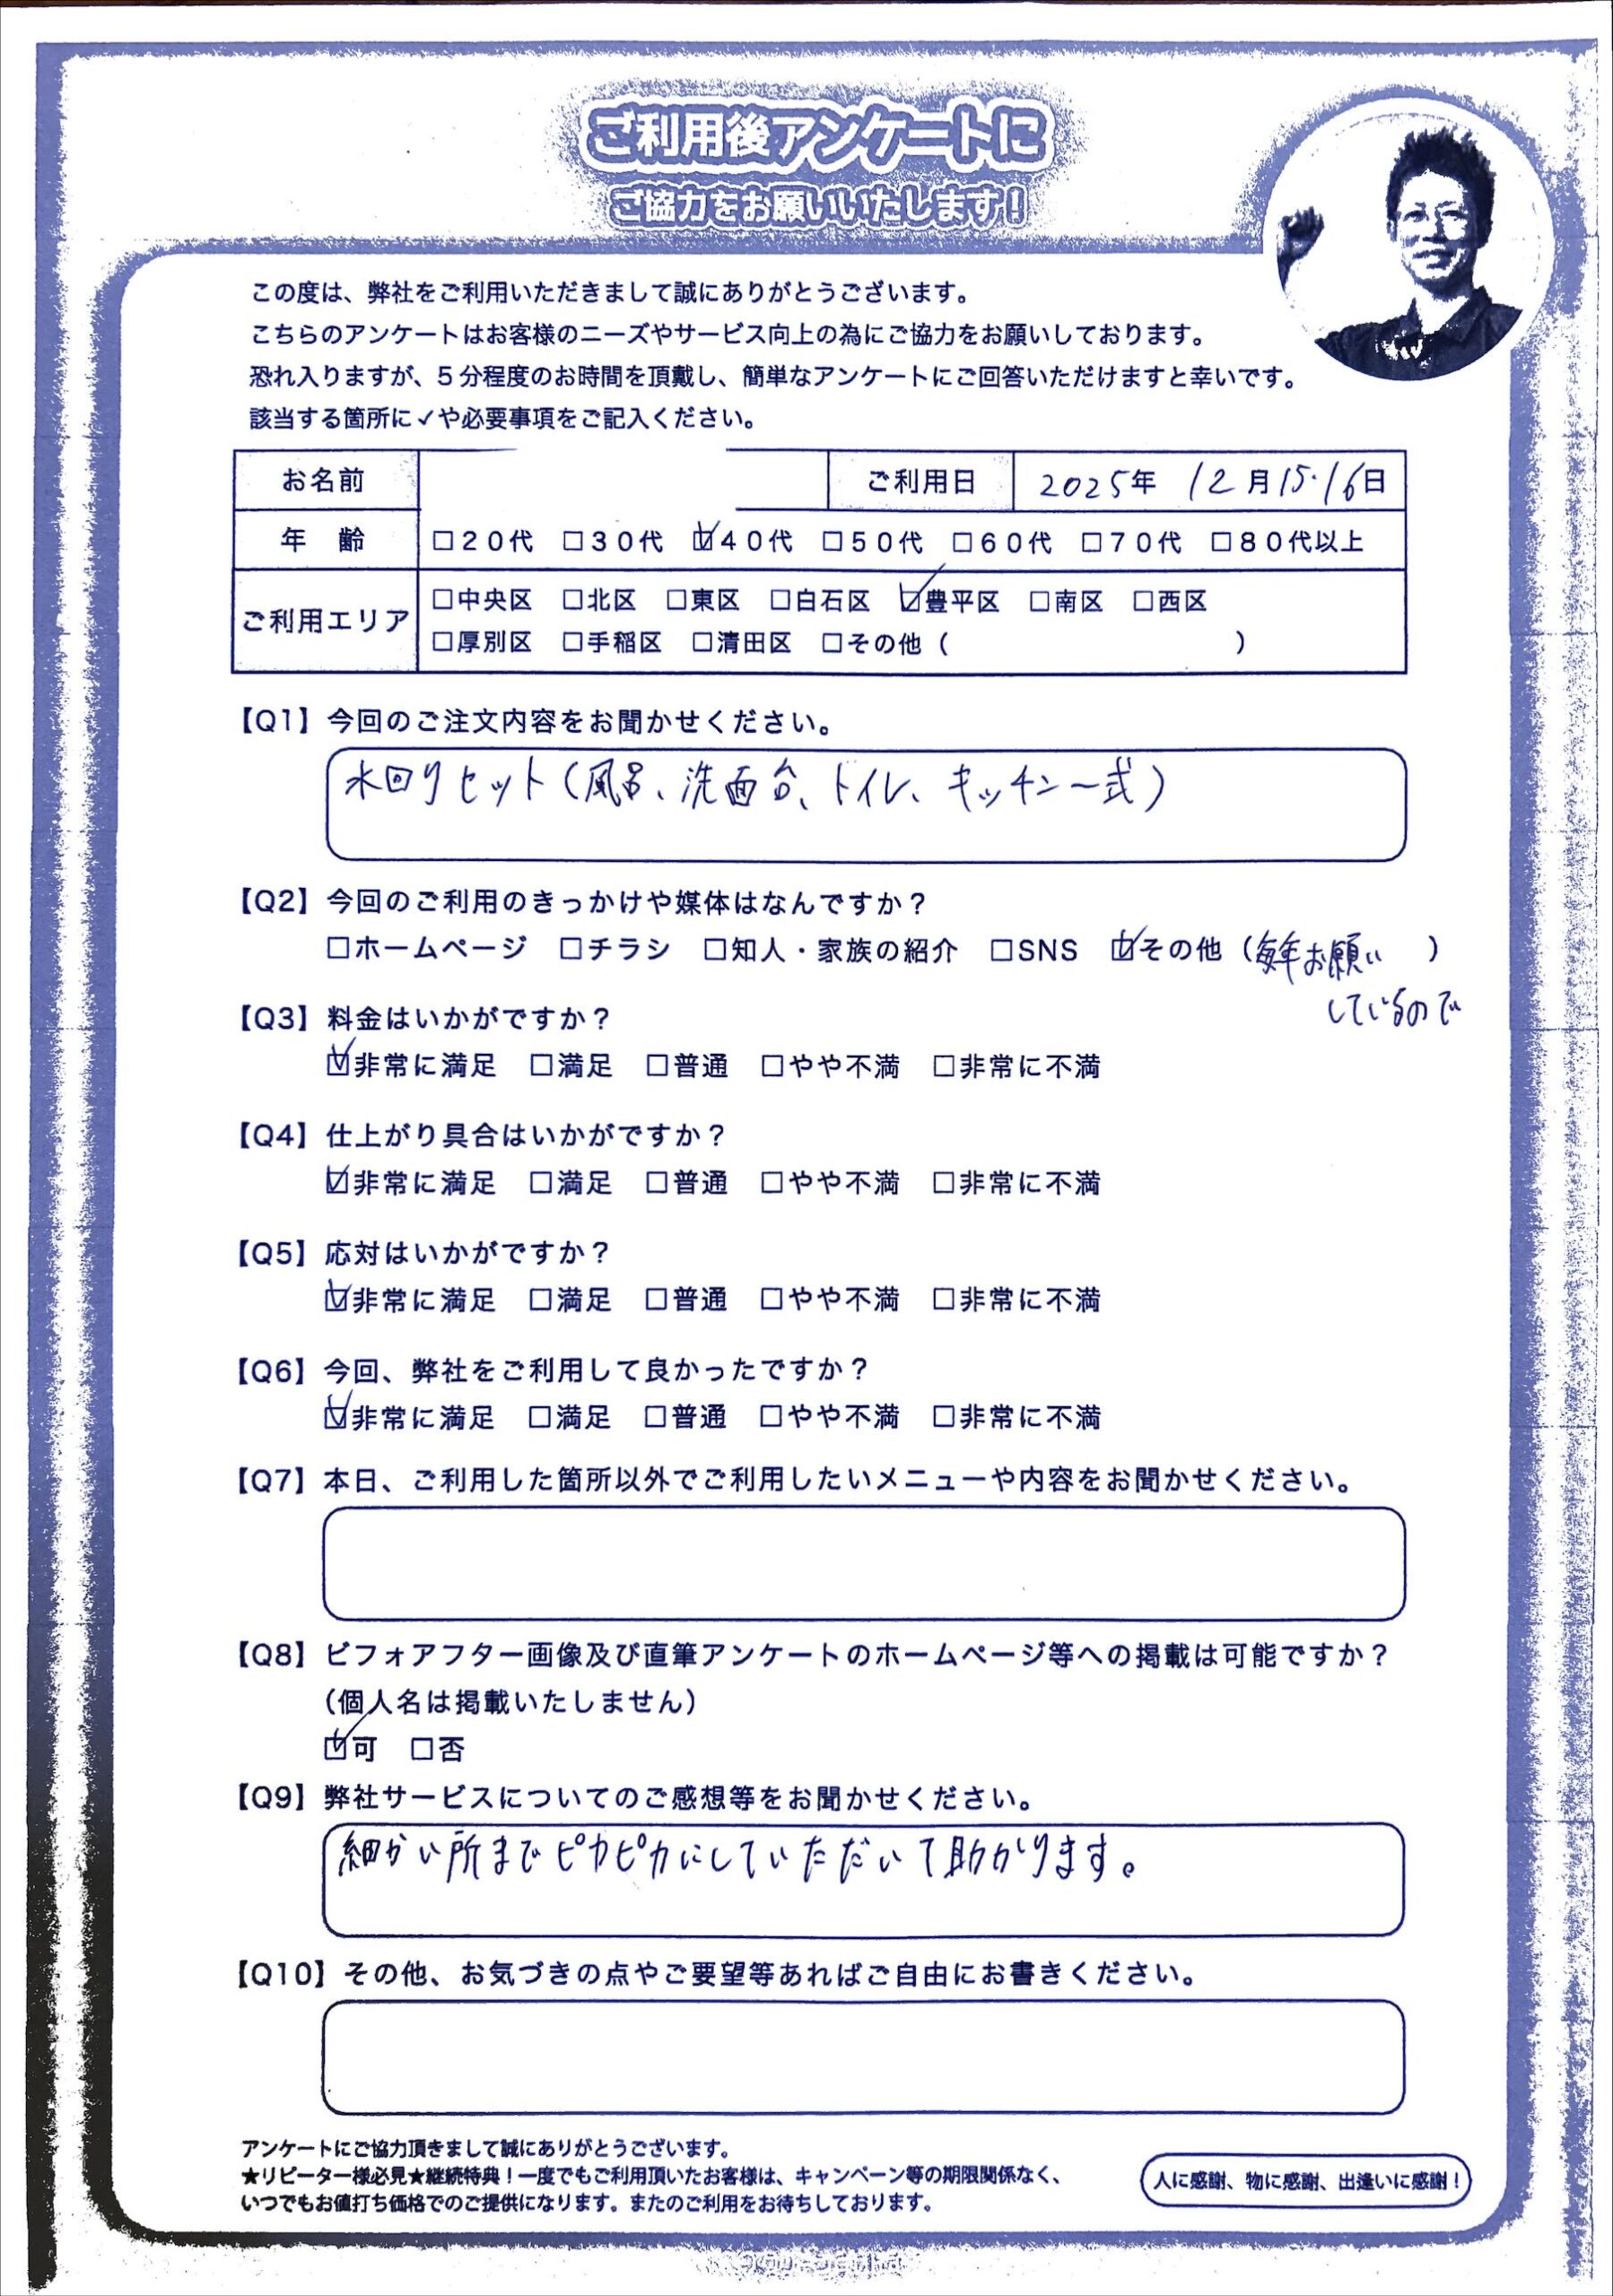 ご利用後アンケートに
ご協力をお願いいたします!
この度は、弊社をご利用いただきまして誠にありがとうございます。
こちらのアンケートはお客様のニーズやサービス向上の為にご協力をお願いしております。
恐れ入りますが、5分程度のお時間を頂戴し、簡単なアンケートにご回答いただけますと幸いです。
該当する箇所に✓や必要事項をご記入ください。
お名前 ご利用日 2025年 12月15・16日
年 齢 □20代 □30代 ☑40代 □50代 □60代 □70代 □80代以上
ご利用エリア □中央区 □北区 □東区 □白石区 ☑豊平区 □南区 □西区
□厚別区 □手稲区 □清田区 □その他( )
【Q1】今回のご注文内容をお聞かせください。
水回りセット(風呂、洗面台、トイレ、キッチン一式)
【Q2】今回のご利用のきっかけや媒体はなんですか?
□ホームページ □チラシ □知人・家族の紹介 □SNS ☑その他(毎年お願い )
しているので
【Q3】料金はいかがですか?
☑非常に満足 □満足 □普通 □やや不満 □非常に不満
【Q4】仕上がり具合はいかがですか?
☑非常に満足 □満足 □普通 □やや不満 □非常に不満
【Q5】応対はいかがですか?
☑非常に満足 □満足 □普通 □やや不満 □非常に不満
【Q6】今回、弊社をご利用して良かったですか?
☑非常に満足 □満足 □普通 □やや不満 □非常に不満
【Q7】本日、ご利用した箇所以外でご利用したいメニューや内容をお聞かせください。
【Q8】ビフォアフター画像及び直筆アンケートのホームページ等への掲載は可能ですか?
(個人名は掲載いたしません)
☑可 □否
【Q9】弊社サービスについてのご感想等をお聞かせください。
細かい所までピカピカにしていただいて助かります。
【Q10】その他、お気づきの点やご要望等あればご自由にお書きください。
アンケートにご協力頂きまして誠にありがとうございます。
★リピーター様必見★継続特典!一度でもご利用頂いたお客様は、キャンペーン等の期限関係なく、
いつでもお値打ち価格でのご提供になります。またのご利用をお待ちしております。
人に感謝、物に感謝、出逢いに感謝!